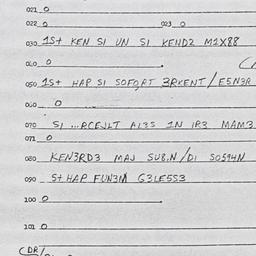 021 0
022 0 023 0
030 1St KEN SI UN SI KENDZ M1X88
040 0
050 1St HAP SI SOFORT 3RKENT/E5N3R
060 0
070 SI ...RCEJLT A13S 1N IR3 MAM3
071 0
080 KEN3RD3 MAJ SU8.N/DI SO594N
090 St HAP FUN3M G3LE5S3
100 0
101 0
(DR/